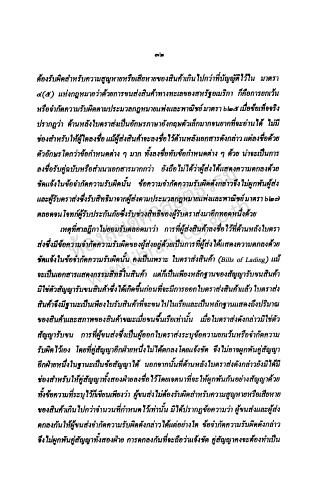 ๓๒
ต้องรับผิดสำหรับความสูญหายหรือเสียหายของสินค้าเกินไปกว่าที่บัญญัติไว้ใน มาตรา
๔(๕) แห่งกฎหมายว่าด้วยการขนส่งสินค้าทางทะเลของสหรัฐอเมริกา ก็คือการยกเว้น
หรือจำกัดความรับผิดตามประมวลกฎหมายแพ่งและพาณิชย์ มาตรา ๖๒๕ เมื่อข้อเท็จจริง
ปรากฏว่า ด้านหลังใบตราส่งเป็นอักษรภาษาอังกฤษตัวเล็กมากจนยากที่จะอ่านได้ ไม่มี
ช่องสำหรับให้ผู้ใดลงชื่อ แม้ผู้ส่งสินค้าจะลงชื่อไว้ด้านหลังเอกสารดังกล่าว แต่ลงชื่อด้วย
ตัวอักษรโตกว่าข้อกำหนดต่าง ๆ มาก ทั้งลงชื่อทับข้อกำหนดต่าง ๆ ด้วย น่าจะเป็นการ
ลงชื่อรับคู่ฉบับหรือสำเนาเอกสารมากกว่า ยังถือไม่ได้ว่าผู้ส่งได้แสดงความตกลงด้วย
ชัดแจ้งในข้อจำกัดความรับผิดนั้น ข้อความจำกัดความรับผิดดังกล่าวจึงไม่ผูกพันผู้ส่ง
และผู้รับตราส่งซึ่งรับสิทธิมาจากผู้ส่งตามประมวลกฎหมายแพ่งและพาณิชย์ มาตรา ๖๒๗
ตลอดจนโจทก์ผู้รับประกันภัยซึ่งรับช่วงสิทธิของผู้รับตราส่งมาอีกทอดหนึ่งด้วย
เหตุที่ศาลฎีกาไม่ยอมรับตลอดมาว่า การที่ผู้ส่งสินค้าลงชื่อไว้ที่ด้านหลังใบตรา
ส่งซึ่งมีข้อความจำกัดความรับผิดของผู้ส่งอยู่ด้วยเป็นการที่ผู้ส่งได้แสดงความตกลงด้วย
ชัดแจ้งในข้อจำกัดความรับผิดนั้น คงเป็นเพราะ ใบตราส่งสินค้า (Bills of Lading) แม้
จะเป็นเอกสารแสดงกรรมสิทธิ์ในสินค้า แต่ก็เป็นเพียงหลักฐานของสัญญารับขนสินค้า
มิใช่ตัวสัญญารับขนสินค้าซึ่งได้เกิดขึ้นก่อนที่จะมีการออกใบตราส่งสินค้าแล้ว ใบตราส่ง
สินค้าจึงมีฐานะเป็นเพียงใบรับสินค้าที่จะขนไปในเรือและเป็นหลักฐานแสดงถึงปริมาณ
ของสินค้าและสภาพของสินค้าขณะเมื่อขนขึ้นเรือเท่านั้น เมื่อใบตราส่งดังกล่าวมิใช่ตัว
สัญญารับขน การที่ผู้ขนส่งซึ่งเป็นผู้ออกใบตราส่งระบุข้อความยกเว้นหรือจำกัดความ
รับผิดไว้เอง โดยที่คู่สัญญาอีกฝ่ายหนึ่งไม่ได้ตกลงโดยแจ้งชัด จึงไม่อาจผูกพันคู่สัญญา
อีกฝ่ายหนึ่งในฐานะเป็นข้อสัญญาได้ นอกจากนั้นที่ด้านหลังใบตราส่งดังกล่าวยังมิได้มี
ช่องสำหรับให้คู่สัญญาทั้งสองฝ่ายลงชื่อไว้โดยเจตนาที่จะให้ผูกพันกันอย่างสัญญาด้วย
ทั้งข้อความที่ระบุไว้ก็เขียนเพียงว่า ผู้ขนส่งจะไม่ต้องรับผิดสำหรับความสูญหายหรือเสียหาย
ของสินค้าเกินไปกว่าจำนวนที่กำหนดไว้เท่านั้น มิได้ปรากฏข้อความว่า ผู้ขนส่งและผู้ส่ง
ตกลงกันให้ผู้ขนส่งจำกัดความรับผิดดังกล่าวได้แต่อย่างใด ข้อจำกัดความรับผิดดังกล่าว
จึงไม่ผูกพันคู่สัญญาทั้งสองฝ่าย การตกลงกันที่จะถือว่าแจ้งชัด คู่สัญญาคงจะต้องทำเป็น